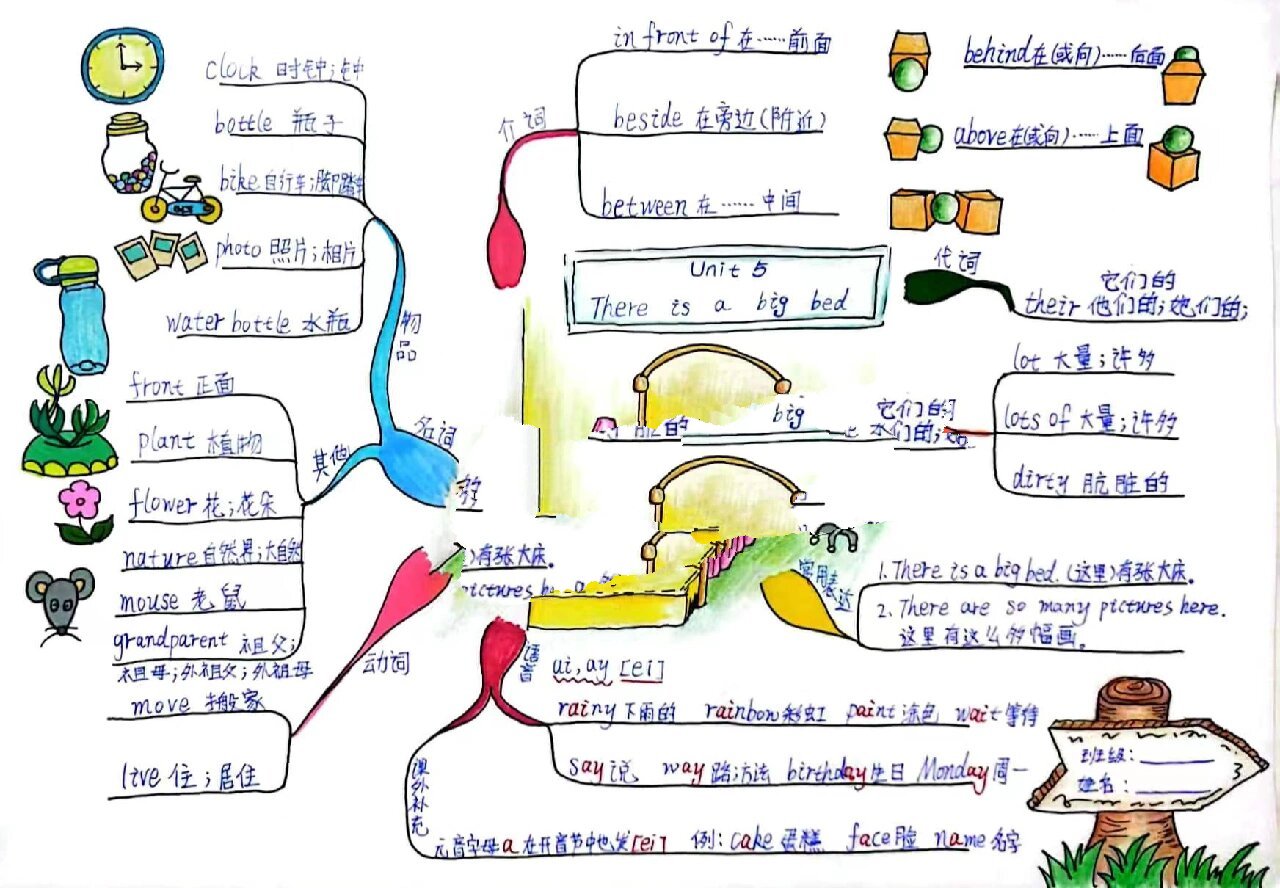 clock 时钟;钟
bottle 瓶子
bike 自行车;脚踏车
photo 照片;相片
water bottle 水瓶
物品
名词
其他
front 正面
plant 植物
flower 花;花朵
nature 自然界;大自然
mouse 老鼠
grandparent 祖父;
祖母;外祖父;外祖母
动词
move 搬家
live 住;居住
介词
in front of 在……前面
beside 在旁边(附近)
between 在……中间
behind 在(或向)……后面
above 在(或向)……上面
Unit 5
There is a big bed
代词
它们的
their 他们的;她们的;
lot 大量;许多
lots of 大量;许多
dirty 肮脏的
脏的
big
它们的
们的;
)有张大床。
ictures
实用表达
1. There is a big bed. (这里)有张大床。
2. There are so many pictures here.
这里有这么多幅画。
语音
ai, ay [ei]
rainy 下雨的 rainbow 彩虹 paint 涂色 wait 等待
say 说 way 路;方法 birthday 生日 Monday 周一
课外补充
元音字母a在开音节中也发[ei] 例: cake 蛋糕 face 脸 name 名字
班级:
姓名:
3